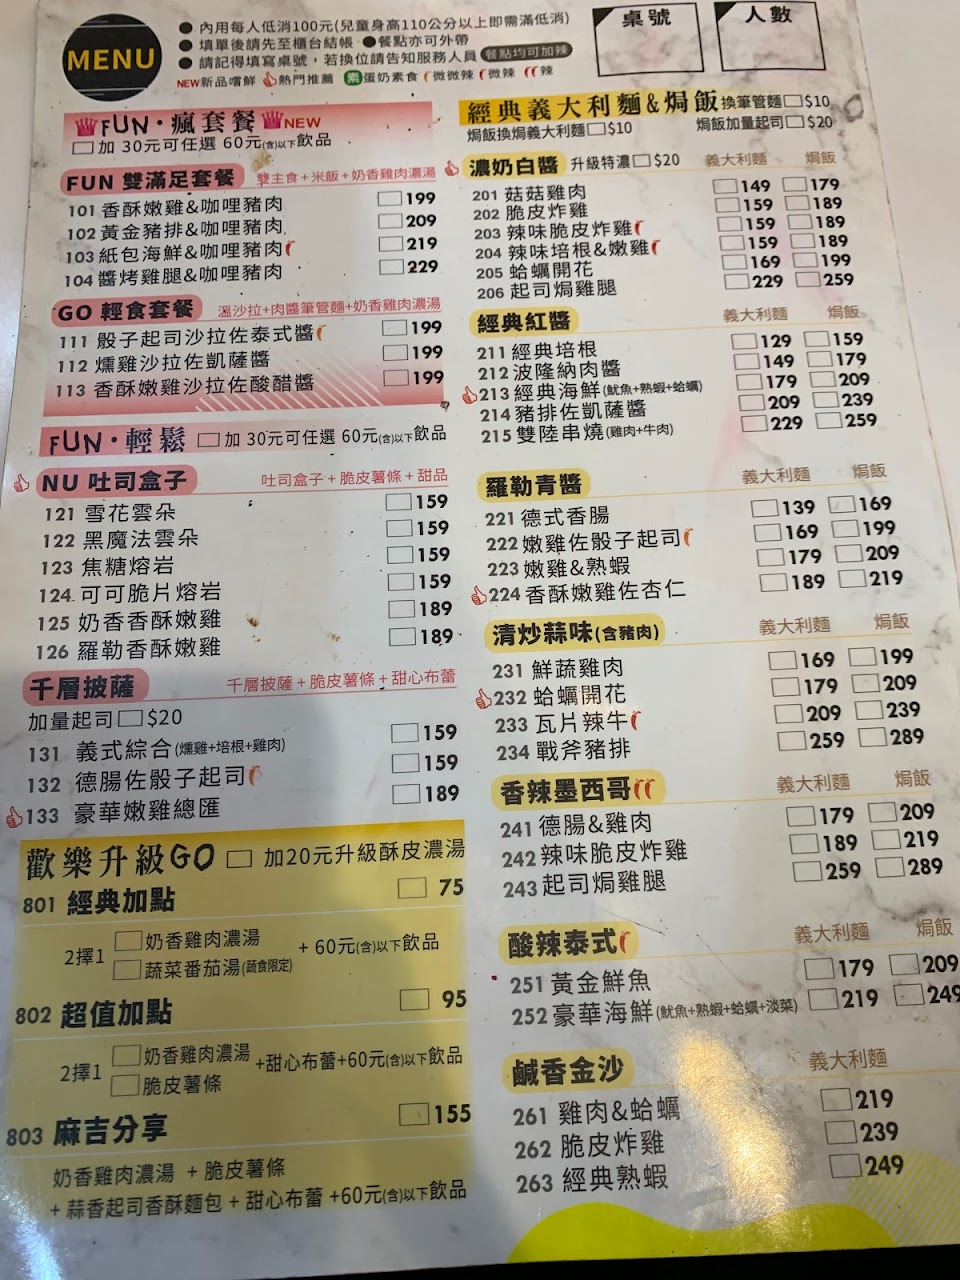 MENU
● 內用每人低消100元(兒童身高110公分以上即需滿低消)
● 填單後請先至櫃台結帳 ●餐點亦可外帶
● 請記得填寫桌號，若換位請告知服務人員 餐點均可加辣
NEW新品嚐鮮 熱門推薦 素 蛋奶素食 微微辣 微辣 辣
桌號
人數
FUN・瘋套餐 NEW
加 30元可任選 60元(含)以下飲品
FUN 雙滿足套餐 雙主食+米飯+奶香雞肉濃湯
101 香酥嫩雞&咖哩豬肉 199
102 黃金豬排&咖哩豬肉 209
103 紙包海鮮&咖哩豬肉 219
104 醬烤雞腿&咖哩豬肉 229
GO 輕食套餐 溫沙拉+肉醬筆管麵+奶香雞肉濃湯
111 骰子起司沙拉佐泰式醬 199
112 燻雞沙拉佐凱薩醬 199
113 香酥嫩雞沙拉佐酸醋醬 199
FUN・輕鬆 加 30元可任選 60元(含)以下飲品
NU 吐司盒子 吐司盒子+脆皮薯條+甜品
121 雪花雲朵 159
122 黑魔法雲朵 159
123 焦糖熔岩 159
124 可可脆片熔岩 159
125 奶香香酥嫩雞 189
126 羅勒香酥嫩雞 189
千層披薩 千層披薩+脆皮薯條+甜心布蕾
加量起司 $20
131 義式綜合(燻雞+培根+雞肉) 159
132 德腸佐骰子起司 159
133 豪華嫩雞總匯 189
歡樂升級GO 加20元升級酥皮濃湯
801 經典加點 75
2擇1 奶香雞肉濃湯 + 60元(含)以下飲品
蔬菜番茄湯(蔬食限定)
802 超值加點 95
2擇1 奶香雞肉濃湯 +甜心布蕾+60元(含)以下飲品
脆皮薯條
803 麻吉分享 155
奶香雞肉濃湯 + 脆皮薯條
+ 蒜香起司香酥麵包 + 甜心布蕾 +60元(含)以下飲品
經典義大利麵&焗飯 換筆管麵 $10
焗飯換焗義大利麵 $10 焗飯加量起司 $20
濃奶白醬 升級特濃 $20 義大利麵 焗飯
201 菇菇雞肉 149 179
202 脆皮炸雞 159 189
203 辣味脆皮炸雞 159 189
204 辣味培根&嫩雞 159 189
205 蛤蠣開花 169 199
206 起司焗雞腿 229 259
經典紅醬 義大利麵 焗飯
211 經典培根 129 159
212 波隆納肉醬 149 179
213 經典海鮮(魷魚+熟蝦+蛤蠣) 179 209
214 豬排佐凱薩醬 209 239
215 雙陸串燒(雞肉+牛肉) 229 259
羅勒青醬 義大利麵 焗飯
221 德式香腸 139 169
222 嫩雞佐骰子起司 169 199
223 嫩雞&熟蝦 179 209
224 香酥嫩雞佐杏仁 189 219
清炒蒜味(含豬肉) 義大利麵 焗飯
231 鮮蔬雞肉 169 199
232 蛤蠣開花 179 209
233 瓦片辣牛 209 239
234 戰斧豬排 259 289
香辣墨西哥 義大利麵 焗飯
241 德腸&雞肉 179 209
242 辣味脆皮炸雞 189 219
243 起司焗雞腿 259 289
酸辣泰式 義大利麵 焗飯
251 黃金鮮魚 179 209
252 豪華海鮮(魷魚+熟蝦+蛤蠣+淡菜) 219 249
鹹香金沙 義大利麵
261 雞肉&蛤蠣 219
262 脆皮炸雞 239
263 經典熟蝦 249